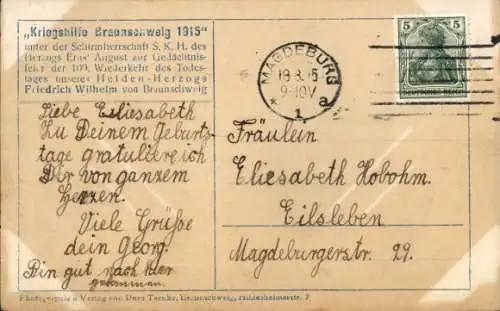 „Kriegshilfe Braunschweig 1915“
unter der Schirmherrschaft S. K. H. des
Herzogs Ernst August zur Gedächtnis-
feier der 100. Wiederkehr des Todes-
tages unseres Helden-Herzogs
Friedrich Wilhelm von Braunschweig
MAGDEBURG
18.8.15
9-10V
* 1 a
5 5
DEUTSCHES REICH
Liebe Eliesabeth
Zu Deinem Geburts-
tage gratuliere ich
Dir von ganzem
Herzen.
Viele Grüße
dein Georg.
Bin gut nach hier
gekommen.
Fräulein
Eliesabeth Hobohm.
Eilsleben
Magdeburgerstr. 29.
Photographie u. Verlag von Dora Braunschweig,